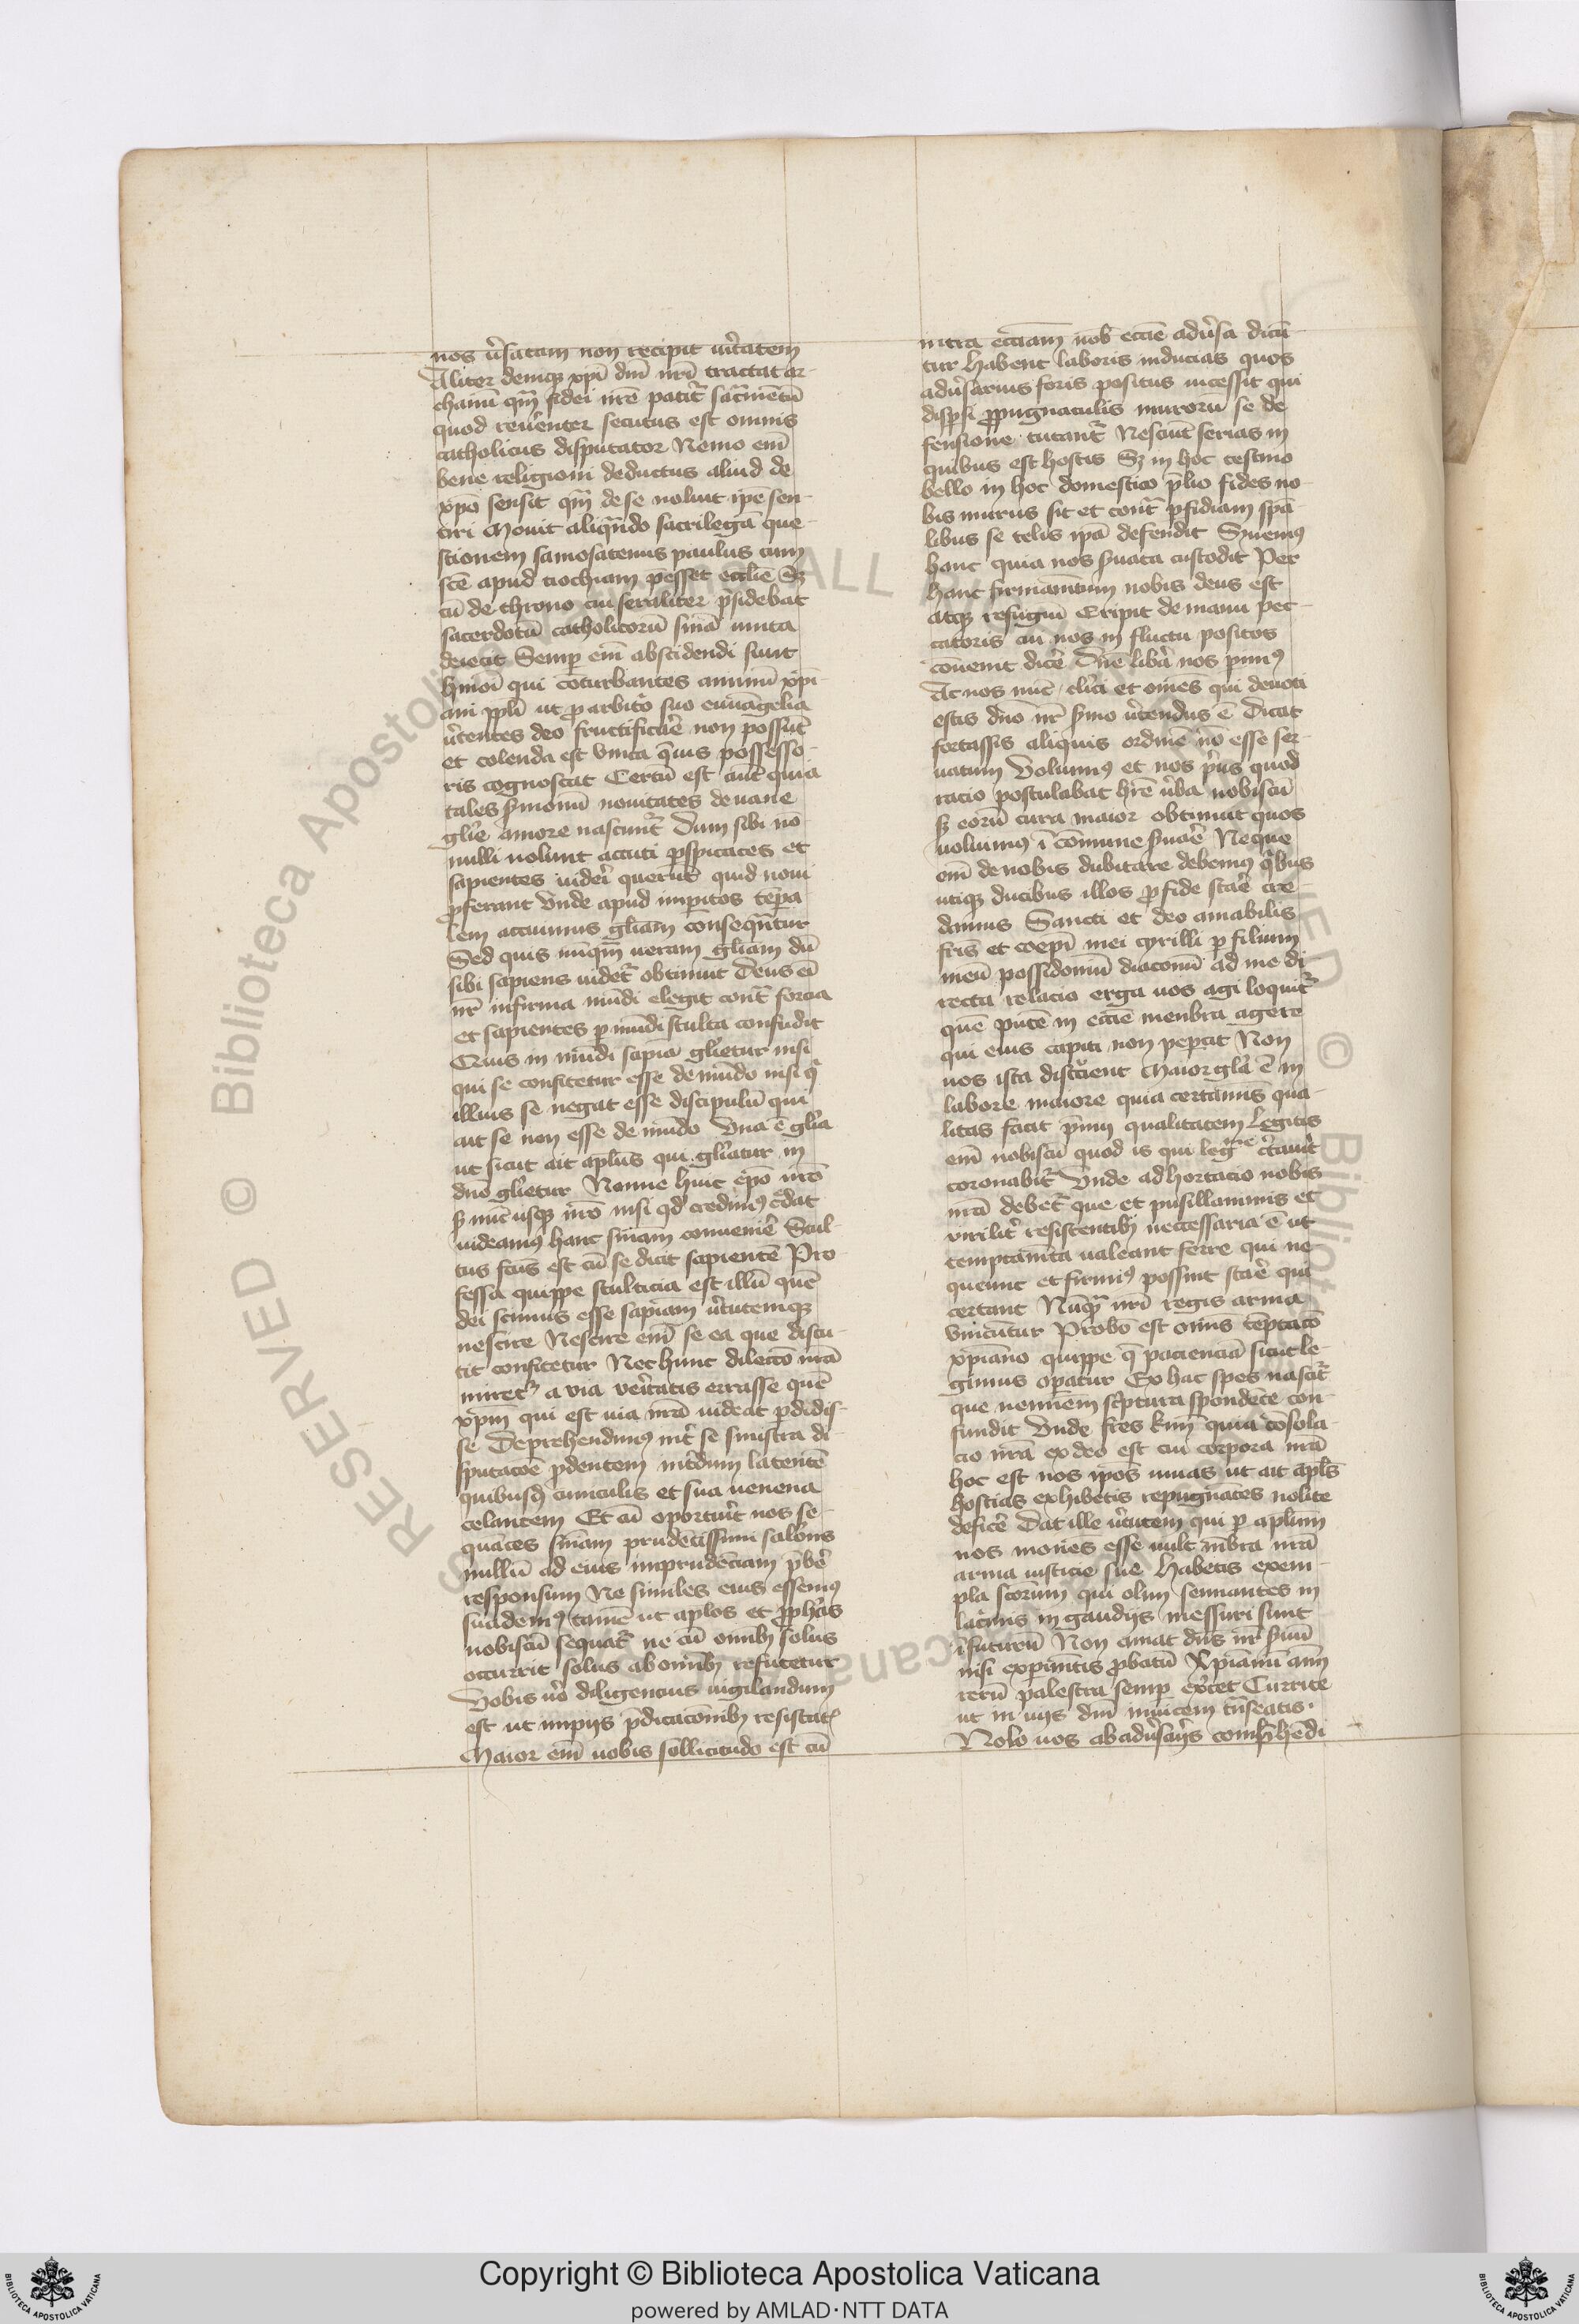 nos v̓satam non recipit uʼtatem
Aliter deniqꝫ xp̄i dn̄i nr̄i tractat ar-
chanū qm̄ fidei nr̄e patit᷑ sacͣmētū
quod reuēnter secutus est omnis
catholicus disputator Nemo em̄
bene religioni deductus aliud de
xp̄o sensit qm̄ de se noluit ip̄e sen-
tiri Mouit aliqn̄do sacrilegā que-
stionem samosatenus paulus cum
scē apud tiochiam p̄esset eccl̄ie Sꝫ
cū de throno cui feraliter p̄sidebat
sacerdotū catholicorū sn̄ia iuncta
deiecit Semp em̄ abscidendi sunt
hm̄oi qui cōturbantes animū xp̄i-
ani ppl̄i ut ꝓ arbitͦ suo euuāgelia
v̓tentes deo fructificāe non possūt
et colenda est vinea q̄ ius possesso-
ris cognoscat Certū est aut̄ quia
tales ẜmonū nouitates de uane
gl̓ie amore nascunt᷑ Dum sibi nō
nulli uolunt acuti ꝑspicaces et
sapientes uideri querūt quid noui
ꝓferant Vnde apud impitos tēpa-
lem acciuimus gl̄iam consequn̄tur
Sed quis nūqm̄ ueram gl̄iam dū
sibi sapiens uidet᷑ obtinuit Deus ei
nr̄ infirma mūdi elegit cont̄ forcia
et sapientes ꝑ mūdi stulta confudit
Quis in mūdi sapīa gl̓ietur nisi
qui se confitetur esse de mūdo nisi qͥ
illius se negat esse discipulū qui
ait se non esse de mūdo Vna ē gl̓ia
ut sicut ait apl̄us qui gl̓iatur in
dn̄o gl̓ietur Nonne huic ep̄o nr̄o
ẜ nūc usqꝫ nr̄o nisi qd̓ credimꝰ cͤdat
uideamꝰ hanc sn̄iam conueniē Stul-
tus fc̄us est cū se dicit sapientē Pro-
fessa quippe stulticia est illū quē
dei scimus esse sapīam v̓tutemqꝫ
nescire Nescire em̄ se ea que discu-
tit confitetur Nec hunc dilectō nr̄a
miret᷑ a via veritatis errasse quē
xp̄m qui est uia nr̄a uideat ꝑdidis-
se Deprehendimꝰ int̓ se sinistra di-
sputacōē ꝑdentem int̓dum latentē
quibusdͣ cuniculis et sua uenena
celantem Et cū oportuit nos se-
quātes sn̄iam prudētissimi salōnis
nullū ad eius imprudēciam p̄bē
responsum Ne similes eius essemꝰ
suademꝰ tamē ut aplōs et ꝓphas
nobiscū sequat᷑ ne cū omībꝫ solus
occurrit solus ab omībꝫ refutetur
Vobis v̓o diligencius uigilandum
est ut impijs p̄dicacōnibꝫ resistat᷑
Maior em̄ uobis sollicitudo est cū
intra ecc̄iam nob̄ ecc̄ie adu̓sa dicū-
tur Habent laboris inducias quos
adu̓sarius foris positus incessit qui
disꝑsi ꝓpugnaculis murorū se de
fensione tutant᷑ Nesciūt ferias in
quibus est hostis Sꝫ in hoc
bello in hoc domestico p̄lio fides no-
bis murus sit et cont̄ ꝑfidiam spā-
libus se telis ip̄a defendit ẜuemꝰ
hanc quia nos ẜuata custodit Per
hanc firmamētum nobis deus est
atqꝫ refugiū Eripit de manu pec-
catoris cū nos in fluctu positos
cōuenit dicē Dn̄e lib̓a nos pimꝰ
At nos nūc cl̓ici et om̄es qui deuoti
estis dn̄o nr̄ ẜmo v̓tendus ē Dicat
fortassis aliquis ordinē nō esse ser-
uatum Voluimꝰ et nos p̓us quod
racio postulabat hr̄e v̓ba nobiscū
ẜ eorū cura maior obtinuit quos
uoluimꝰ ī cōmune ẜuaē Neque
em̄ de nobis dubitare debemꝰ qͥbus
utiqꝫ ducibus illos ꝓ fide staē cre-
damus Sancti et deo amabilis
fr̄is et coep̄i mei cyrilli ꝑ filium
meū possidoniū diaconū ad me di-
recta relacio erga uos agi loquit᷑
quē putē in ecc̄ie menbra agere
qui eius capiti non peꝑcit Non
uos ista discͦcient Maior gl̓a ē in
labore maiore quia certaminis qua-
litas facit p̓mij qualitatem Legitis
em̄ nobiscū quod is qui leg̓ᵉ c̓tauit
coronabit᷑ Vnde adhortacio nobis
nr̄a debet᷑ que et pusillanimis et
virilit̓ resistentibꝫ neccessaria ē ut
temptamīta ualeant ferre qui ne
queunt et firmiꝰ possint staē qui
certant Nūqͣ nr̄i regis arma
vincūntur Probō est om̄is tēptacō
xp̄iano quippe q̄ pacienciā sicut le-
gimus operatur Ex hac spes nascit᷑
que neminem sc̓ptura spondēte con-
fundit Vnde fr̄es km̄i quia cōsola-
cio nr̄a ex deo est cui corpora nr̄a
hoc est nos ip̄os uiuas ut ait apl̄s
hostias exhibetis repugnātes nolite
deficē Dat ille v̓tutem qui ꝑ apl̄um
nos mōnes esse uult mēbra nr̄a
arma iusticie sue Habetis exem-
pla sc̄orum qui olim seminantes in
lacͥmis in gaudijs messuri sunt
ī futurū Non amat dn̄s nr̄ ẜuū
nisi experim̄tis ꝓbatū Xp̄ianū anī
rerū palestra semp ex̓cet Currite
ut in uijs dn̄i inuicem tn̄seatis.
Nolo uos ab adu̓sarijs comp̄hēdi